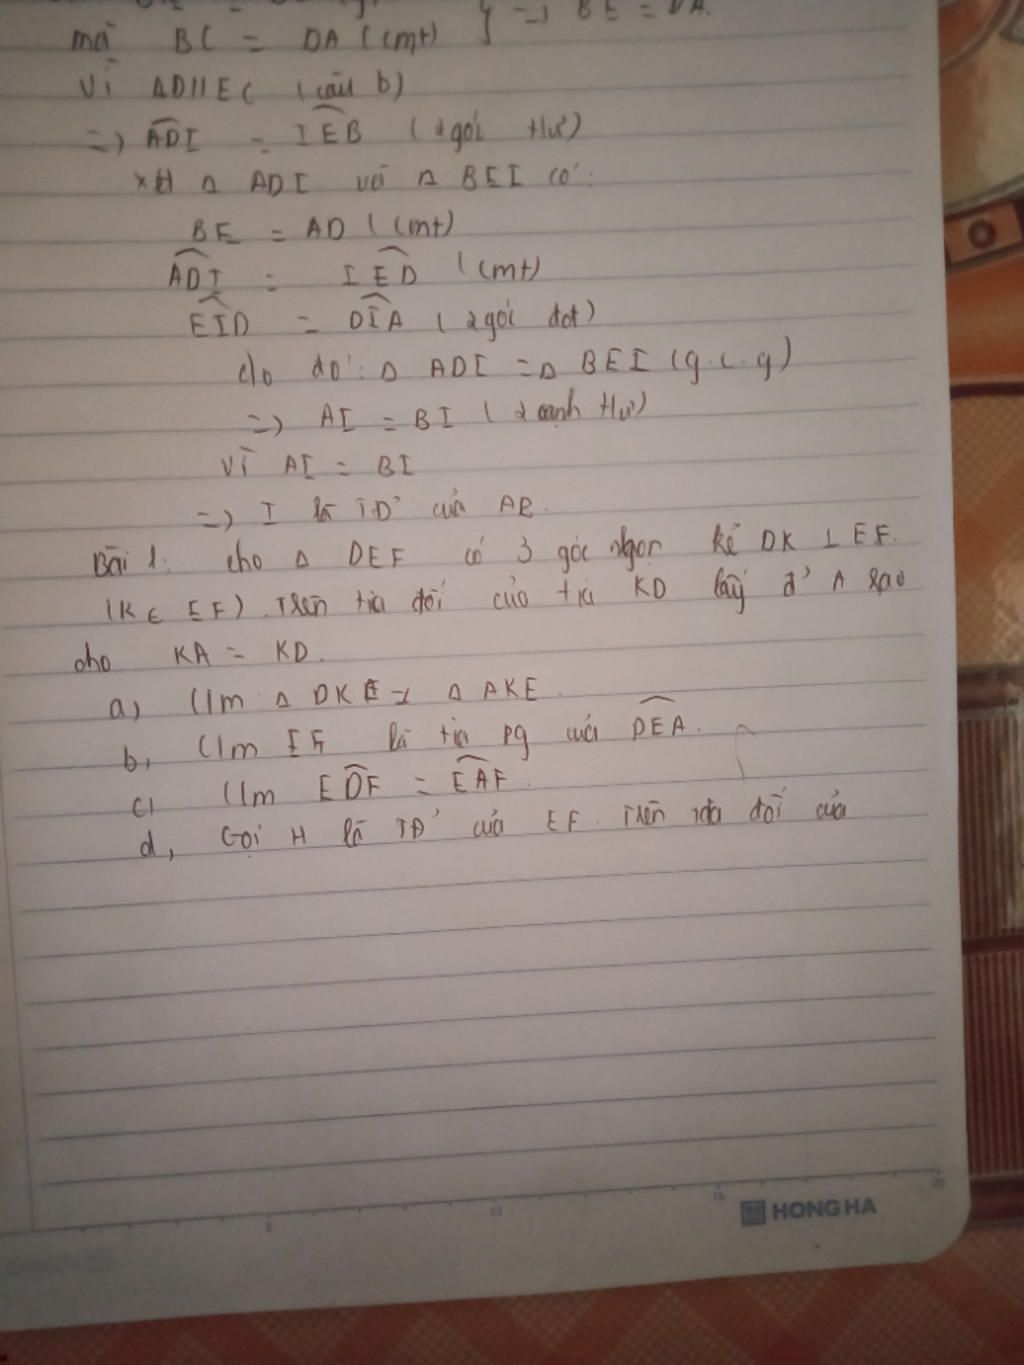 mà BC = DA (cmt) } => BE = DA.
Vì AD//EC (câu b)
=> ADI = IEB (2 góc tư)
xét Δ ADI và Δ BEI có:
BE = AD (cmt)
ADI = IED (cmt)
EID = DIA (2 góc đđ)
do đó: Δ ADI = Δ BEI (g.c.g)
=> AI = BI (2 cạnh tư)
Vì AI = BI
=> I là TĐ' của AB.
Bài 1: cho Δ DEF có 3 góc nhọn kẻ DK ⊥ EF.
(K ∈ EF). Trên tia đối của tia KD lấy đ' A sao
cho KA = KD.
a, C/m Δ DKE = Δ AKE.
b, C/m là tia pg của DEA.
c, C/m EDF = EAF.
d, Gọi H là TĐ' của EF. Trên tia đối của
HONG HA
5 10 15 20